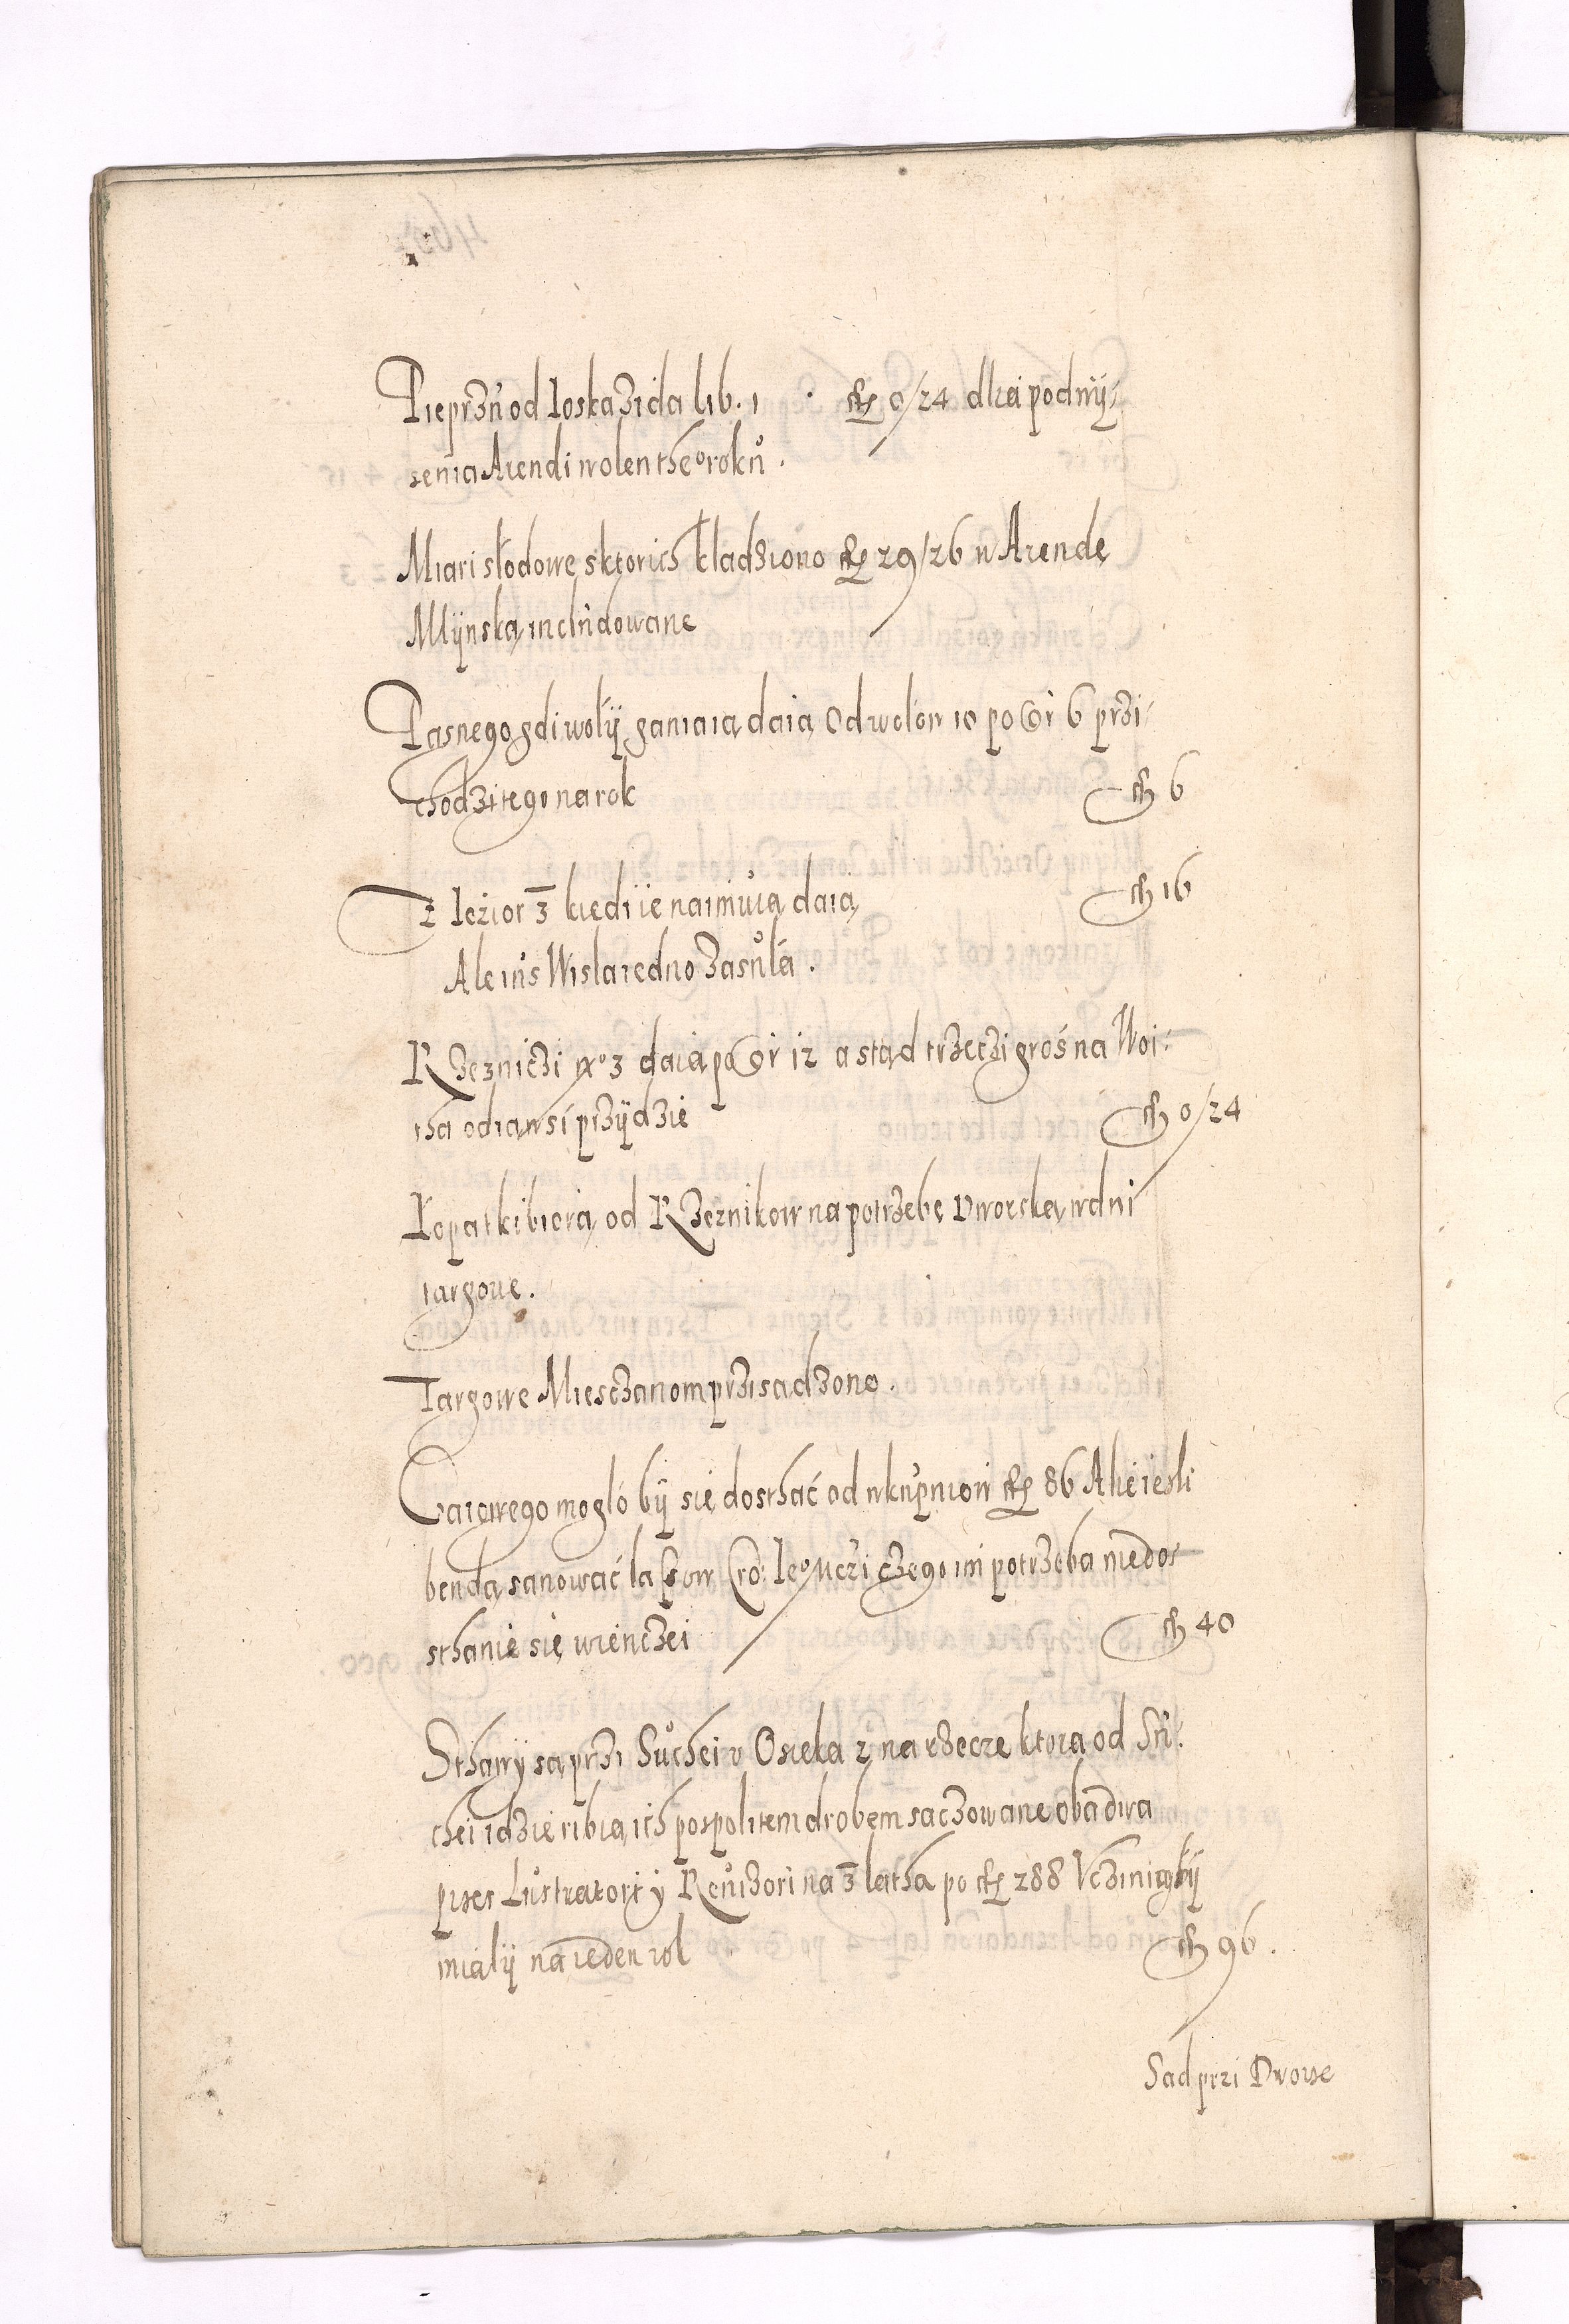 Pieprzu od Ioska Zida lib. 1 . fl 0/24 dlia podwÿ-
senia Arendi wolen theo rokŭ .
Miari słodowe s ktorich kladziono fl 29/26 w Arendę
Mlÿnską includowane
Pasnego gdi wolÿ ganiaią daią Od wolow 10 po Gr 6 przi-
chodzi tego na rok fl 6
Z Iezior 3 kiedi ie naimuią daią fl 16
Ale iuż Wisla iedno zasŭla .
Rzezniczi No 3 daią po Gr 12 a stąd trzeczi gros na Woi-
tha odiawsi przÿdzie fl 0/24
Łopatki biorą od Rzeznikow na potrzebę Dworską w dni
targowe .
Targowe Miesczanom przisadzono .
Gaiowego moglo bÿ się dosthać od wkupniow fl 86 Alie iesli
bendą sanować lassow Kro: Ieo Mczi czego im potrzeba niedo-
sthanie się wienczei fl 40
Sthawÿ są przi Suchei v Osieka 2 na rzecze ktora od Su-
chei idzie ribią ich pospolitem drobem saczowane obadwa
przes Lustratorÿ y Rewizori na 3 latha po fl 288 Vczinicbÿ
mialÿ na ieden rok fl 96 .
Sad przi Dworze